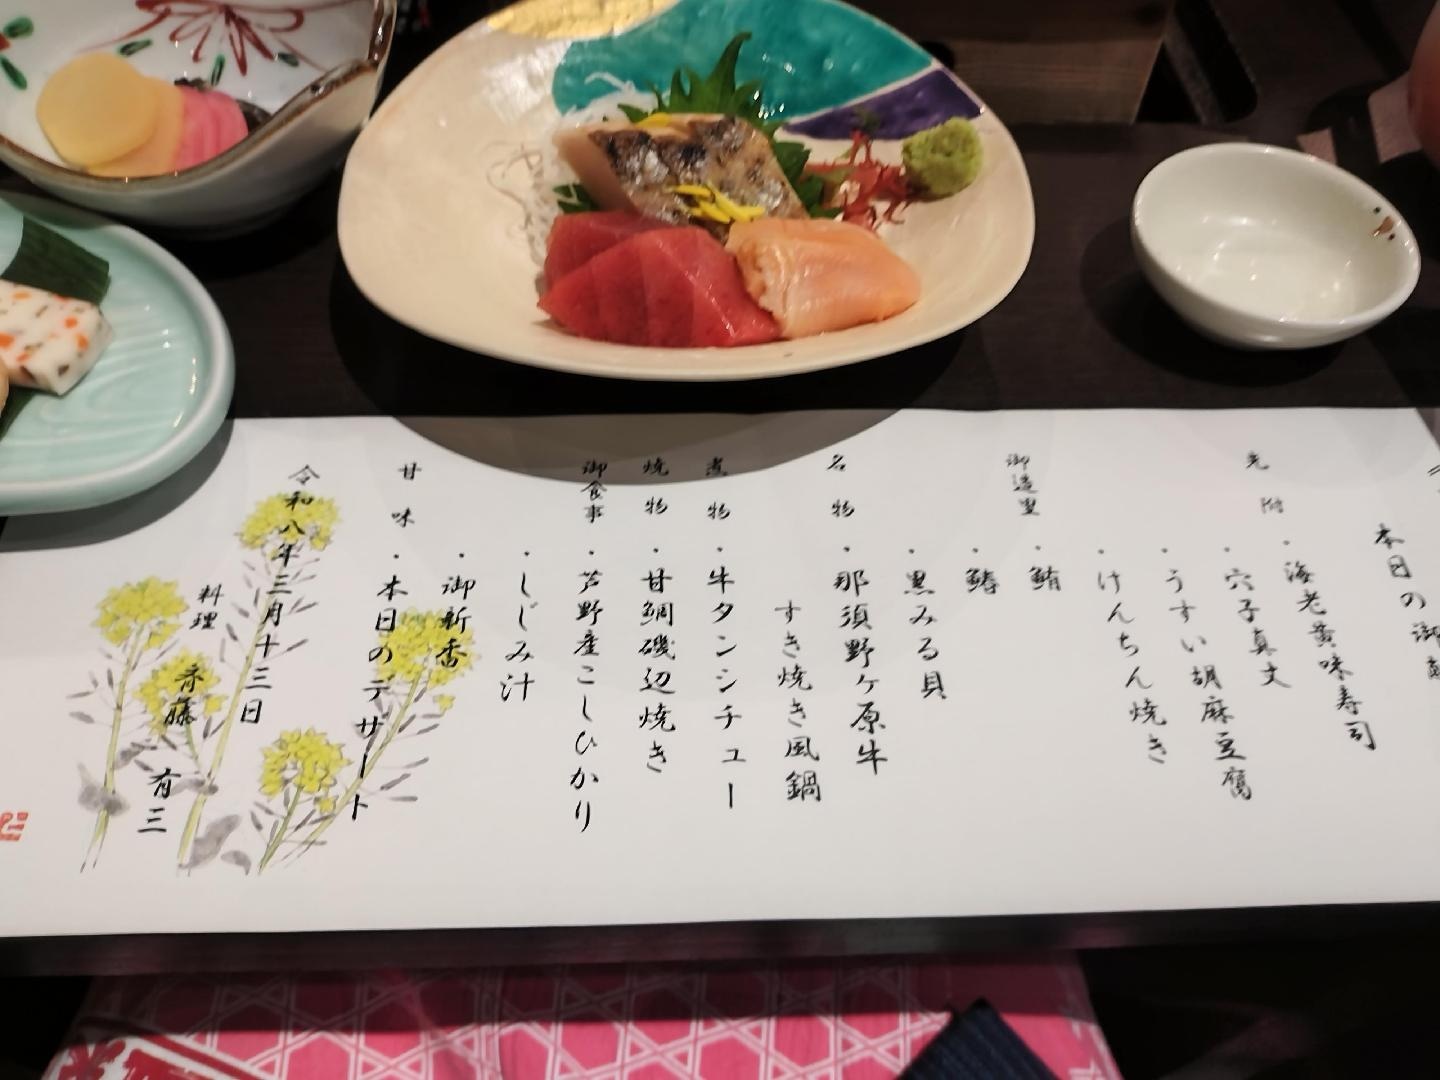 本日の御献
先附
・海老黄味寿司
・穴子真丈
・うすい胡麻豆腐
・けんちん焼き
御造里
・鮪
・鰆
・黒みる貝
名物
・那須野ヶ原牛
すき焼き風鍋
煮物
・牛タンシチュー
焼物
・甘鯛磯辺焼き
御食事
・芦野産こしひかり
・しじみ汁
・御新香
甘味
・本日のデザート
令和八年三月十三日
料理 斉藤 有三